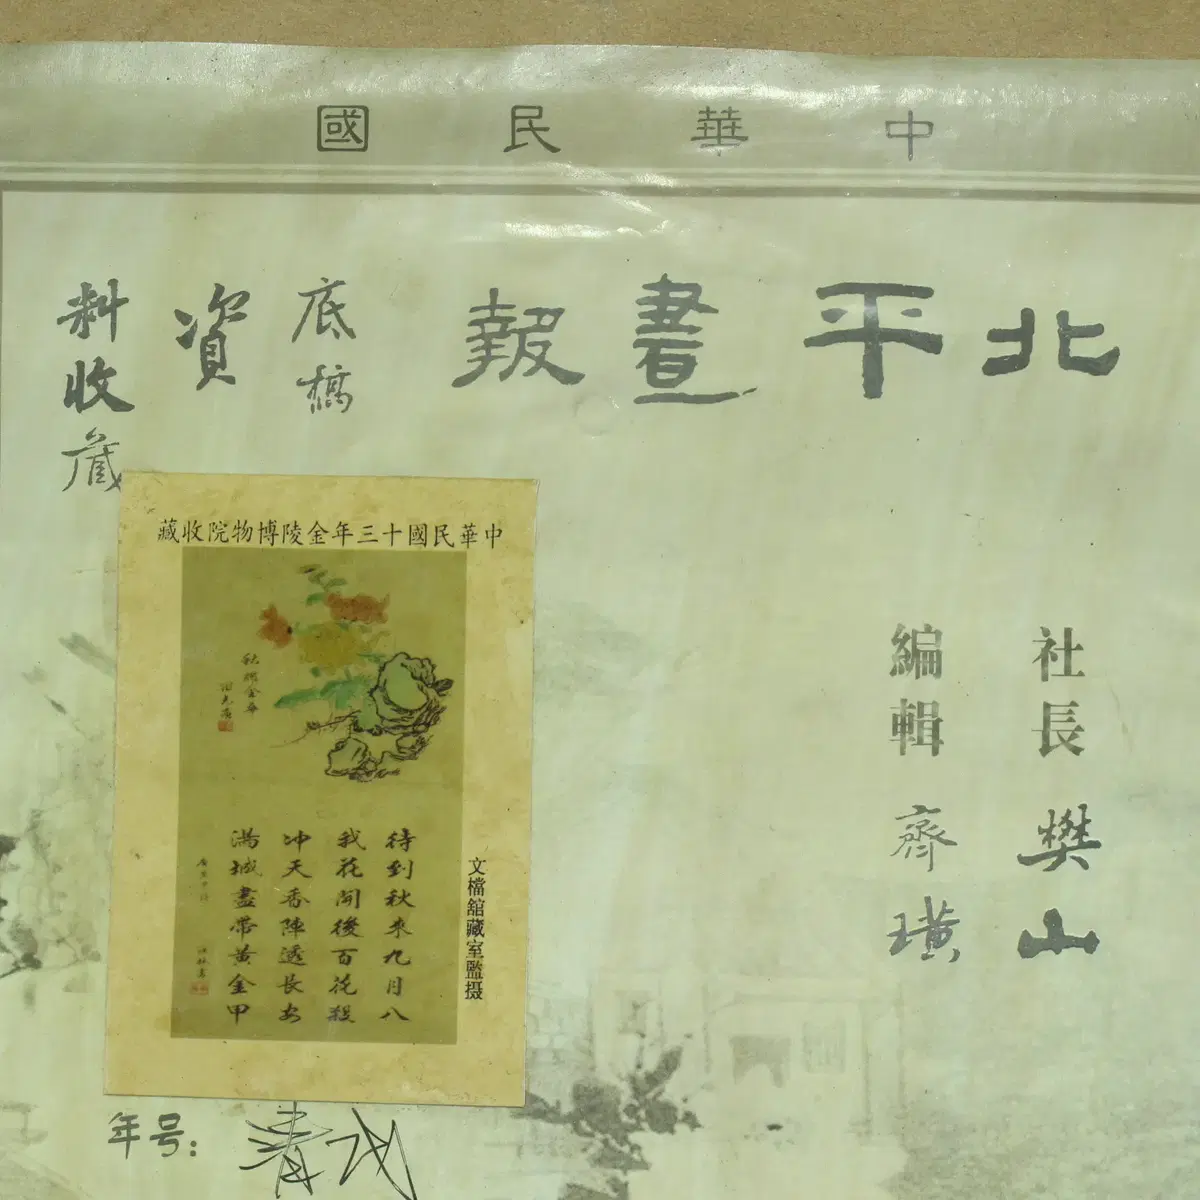 中華民國
北平畫報
底稿
資料收藏
社長 樊山
編輯 齊璜
中華民國十三年金陵博物院收藏
秋耀金華
待到秋來九月八
我花開後百花殺
冲天香陣透長安
滿城盡帶黃金甲
文檔舘藏室監摄
年号：